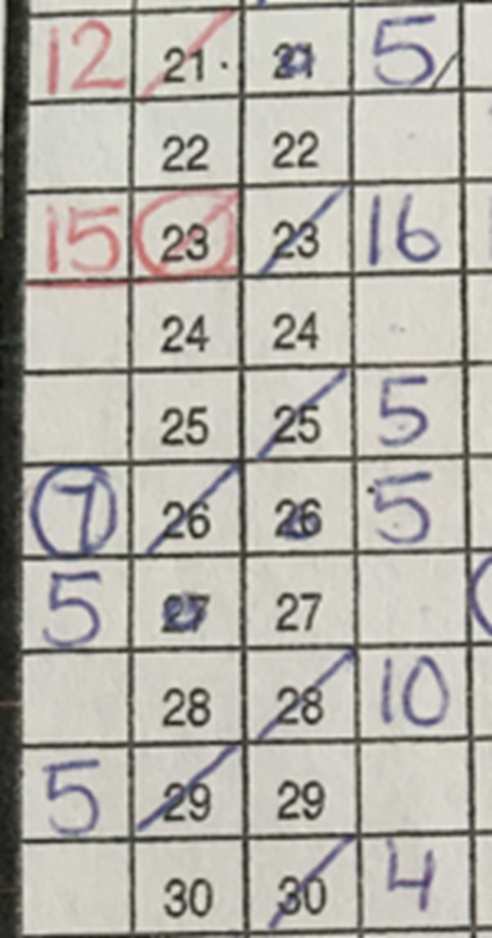 12 21 21 5
22 22
15 23 23 16
24 24
25 25 5
7 26 26 5
5 27 27
28 28 10
5 29 29
30 30 4